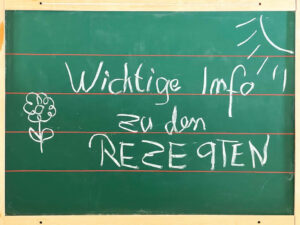 Wichtige Info !
zu den
REZEPTEN